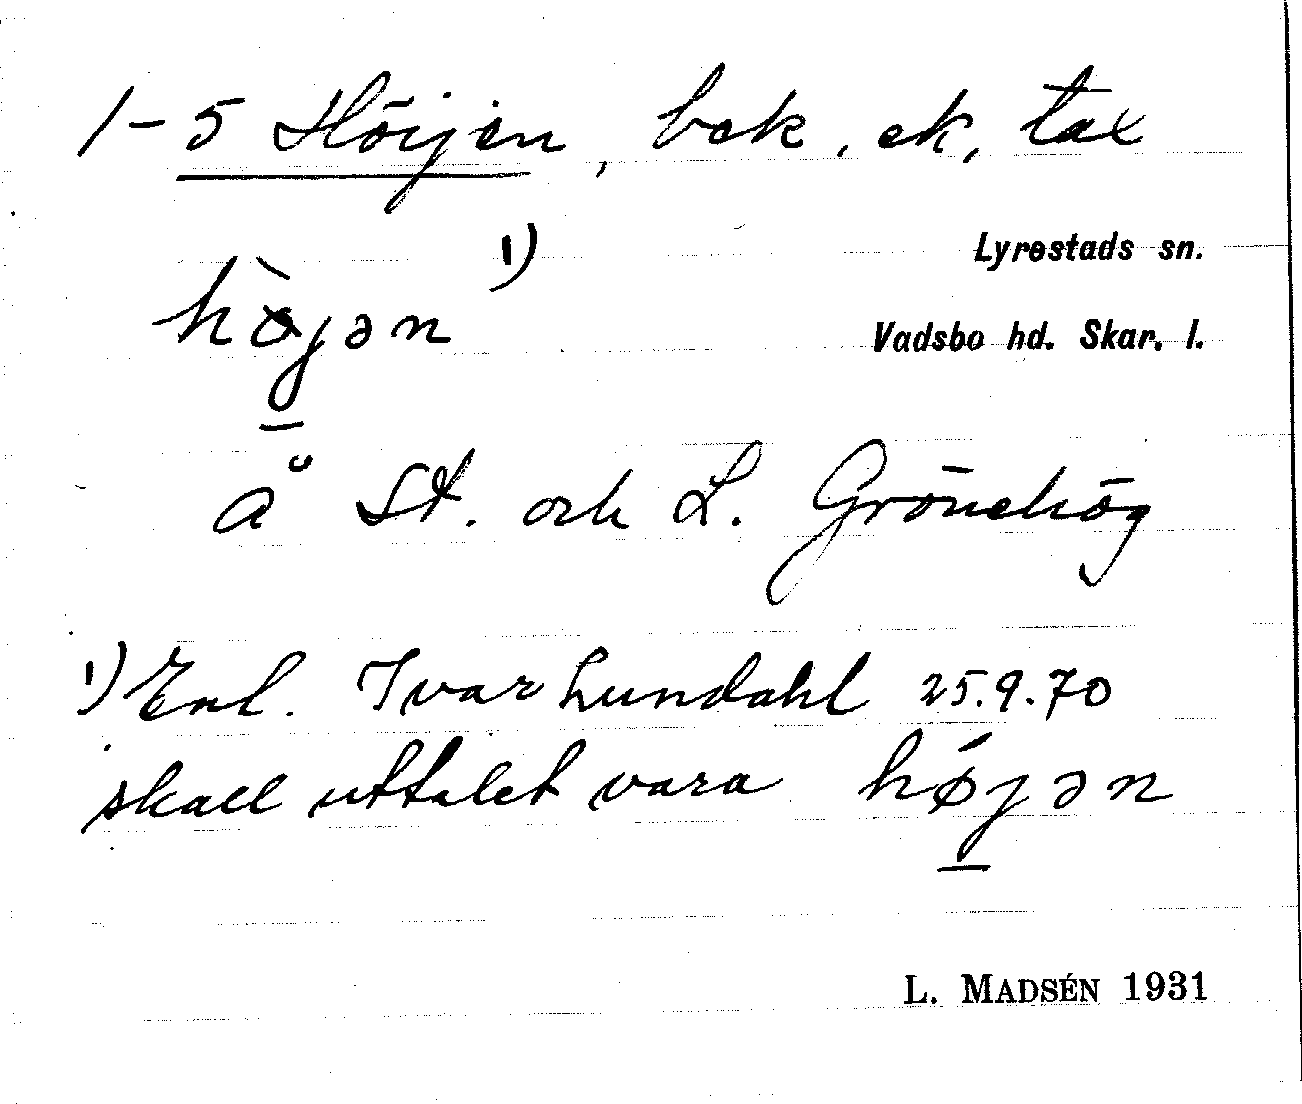 1-5 Höijen, bek. ek, tax
hö̀jən 1)
Lyrestads sn.
Vadsbo hd. Skar. l.
å St. och L. Grönehög
1) Enl. Ivar Lundahl 25.9.70
skall uttalet vara hǿjən
L. MADSÉN 1931